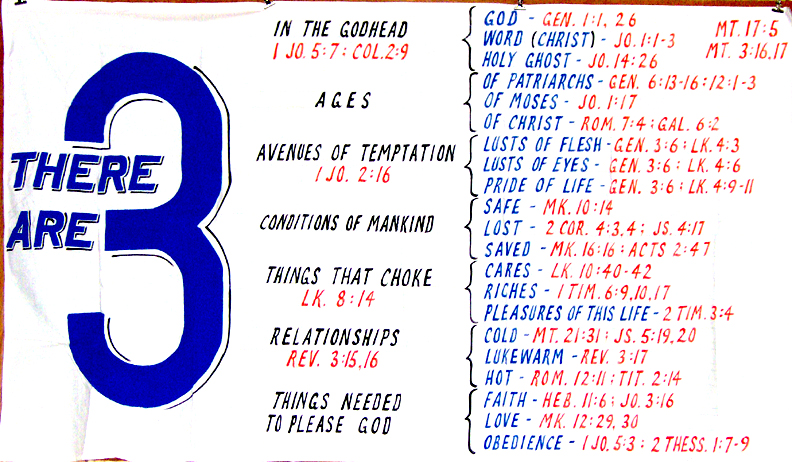 THERE
ARE
3
IN THE GODHEAD
1 JO. 5:7 : COL. 2:9
GOD - GEN. 1:1, 26
WORD (CHRIST) - JO. 1:1-3
HOLY GHOST - JO. 14:26
MT. 17:5
MT. 3:16,17
AGES
OF PATRIARCHS - GEN. 6:13-16 : 12:1-3
OF MOSES - JO. 1:17
OF CHRIST - ROM. 7:4 : GAL. 6:2
AVENUES OF TEMPTATION
1 JO. 2:16
LUSTS OF FLESH - GEN. 3:6 : LK. 4:3
LUSTS OF EYES - GEN. 3:6 : LK. 4:6
PRIDE OF LIFE - GEN. 3:6 : LK. 4:9-11
CONDITIONS OF MANKIND
SAFE - MK. 10:14
LOST - 2 COR. 4:3,4 ; JS. 4:17
SAVED - MK. 16:16 : ACTS 2:47
THINGS THAT CHOKE
LK. 8:14
CARES - LK. 10:40-42
RICHES - 1 TIM. 6:9,10,17
PLEASURES OF THIS LIFE - 2 TIM. 3:4
RELATIONSHIPS
REV. 3:15,16
COLD - MT. 21:31 : JS. 5:19,20
LUKEWARM - REV. 3:17
HOT - ROM. 12:11 : TIT. 2:14
THINGS NEEDED
TO PLEASE GOD
FAITH - HEB. 11:6 ; JO. 3:16
LOVE - MK. 12:29, 30
OBEDIENCE - 1 JO. 5:3 : 2 THESS. 1:7-9